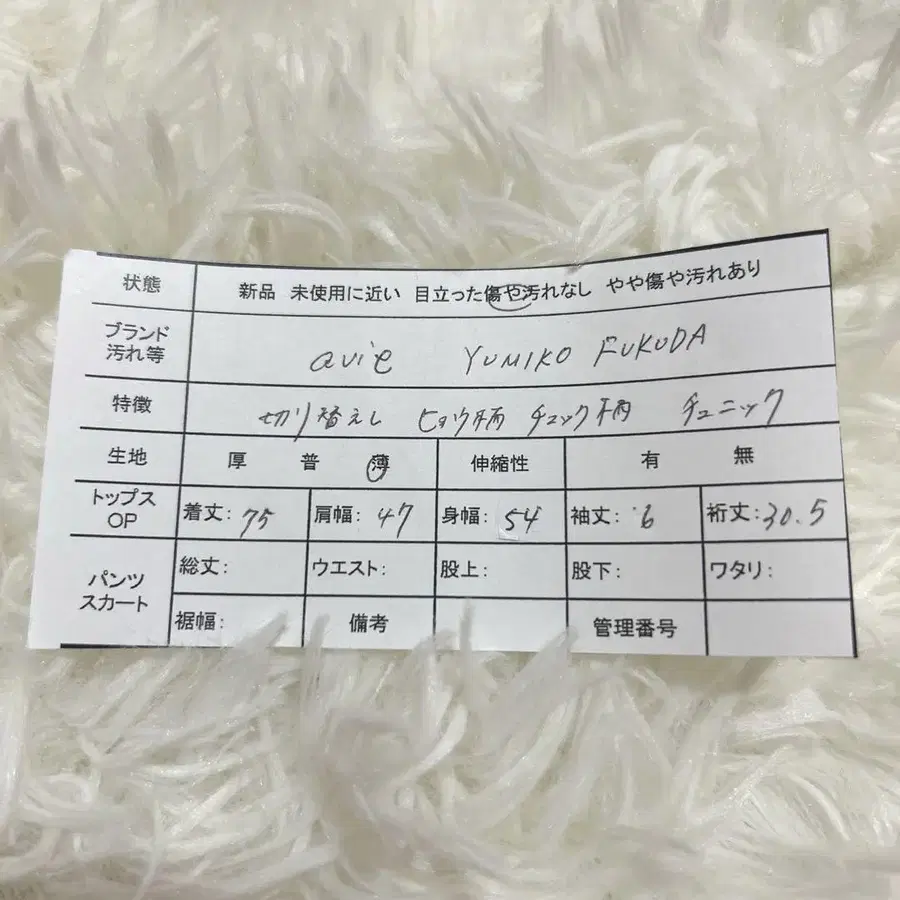 状態 新品 未使用に近い 目立った傷や汚れなし やや傷や汚れあり
ブランド
汚れ等 avie YUMIKO FUKUDA
特徴 切り替えし ヒョウ柄 チェック柄 チュニック
生地 厚 普 薄 伸縮性 有 無
トップス
OP 着丈: 75 肩幅: 47 身幅: 54 袖丈: 6 裄丈: 30.5
パンツ
スカート 総丈: ウエスト: 股上: 股下: ワタリ:
裾幅: 備考 管理番号